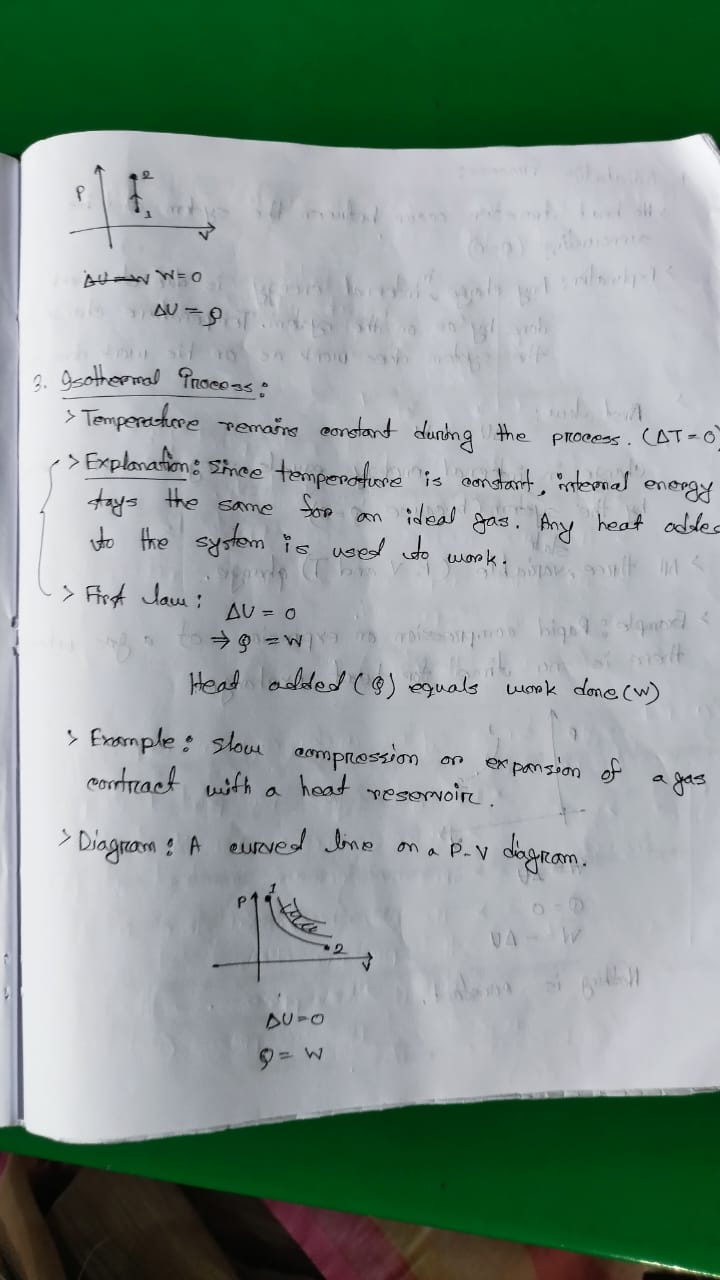 P
2
1
V
ΔU = W W=0
ΔU = Q
3. Isothermal Process:
> Temperature remains constant during the process. (ΔT=0)
> Explanation: Since temperature is constant, internal energy
stays the same for an ideal gas. Any heat added
to the system is used to work.
> First law: ΔU = 0
⇒ Q = W
Heat added (Q) equals work done (W)
> Example: slow compression or expansion of a gas
contract with a heat reservoir.
> Diagram: A curved line on a P-V diagram.
P
1
2
V
ΔU=0
Q = W